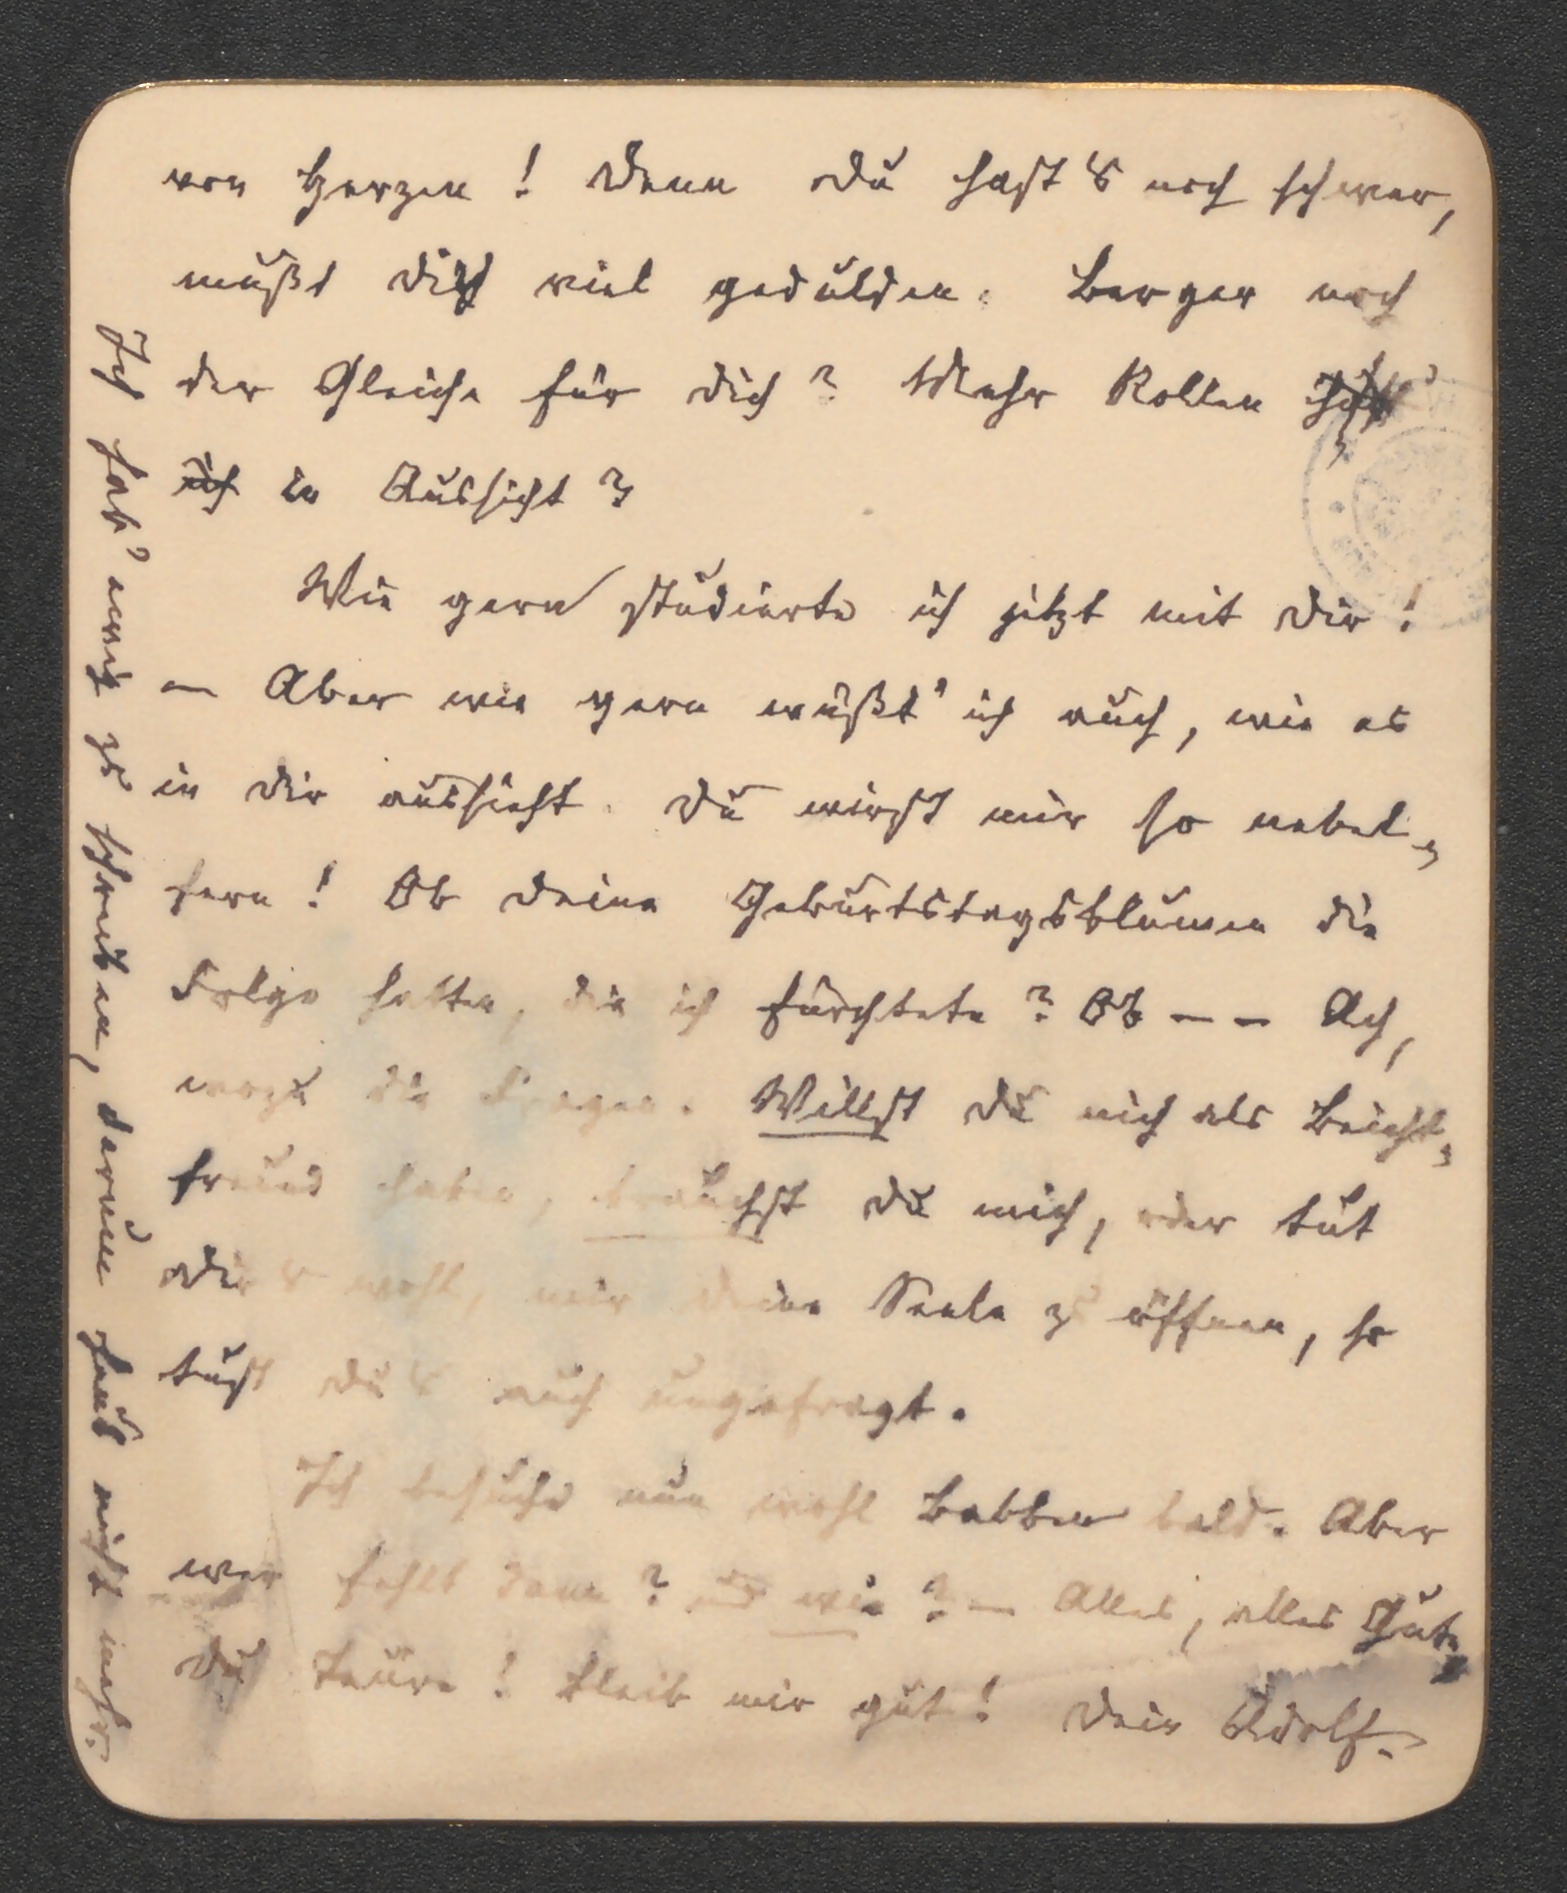 von Herzen! Denn Du hast's noch schwer,
mußt dich viel gedulden. Berger noch
der Gleiche für dich? Mehr Rollen
ich in Aussicht?
Wie gern studierte ich jetzt mit dir!
— Aber wie gern wüßt' ich auch, wie es
in dir aussieht. Du wirst mir so nebel-
fern! Ob deine Geburtstagsblumen die
Folge hatten, die ich fürchtete? Ob – – Ach,
wozu die Fragen. Willst du mich als Beicht-
freund haben, brauchst du mich, oder tut
dir's wohl, mir deine Seele zu öffnen, so
tust du's auch ungefragt.
Ich besuche nun wohl Babben bald. Aber
wer fehlt dann? und wie? — Alles, alles Gute,
du Teure! Bleib mir gut! Dein Adolf.
Ich hab' ewig zu schreiben, darum heut nicht mehr.